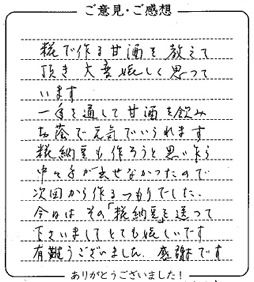 ご意見・ご感想
糀で作る甘酒を教えて
頂き大変嬉しく思って
います
一年を通して甘酒を飲み
お蔭で元気でいられます
糀納豆も作ろうと思い乍ら
中々手が出せなかったので
次回から作るつもりでした。
今日は その「糀納豆を送って
下さいまして とても嬉しいです
有難うございました。感謝です
ありがとうございました！